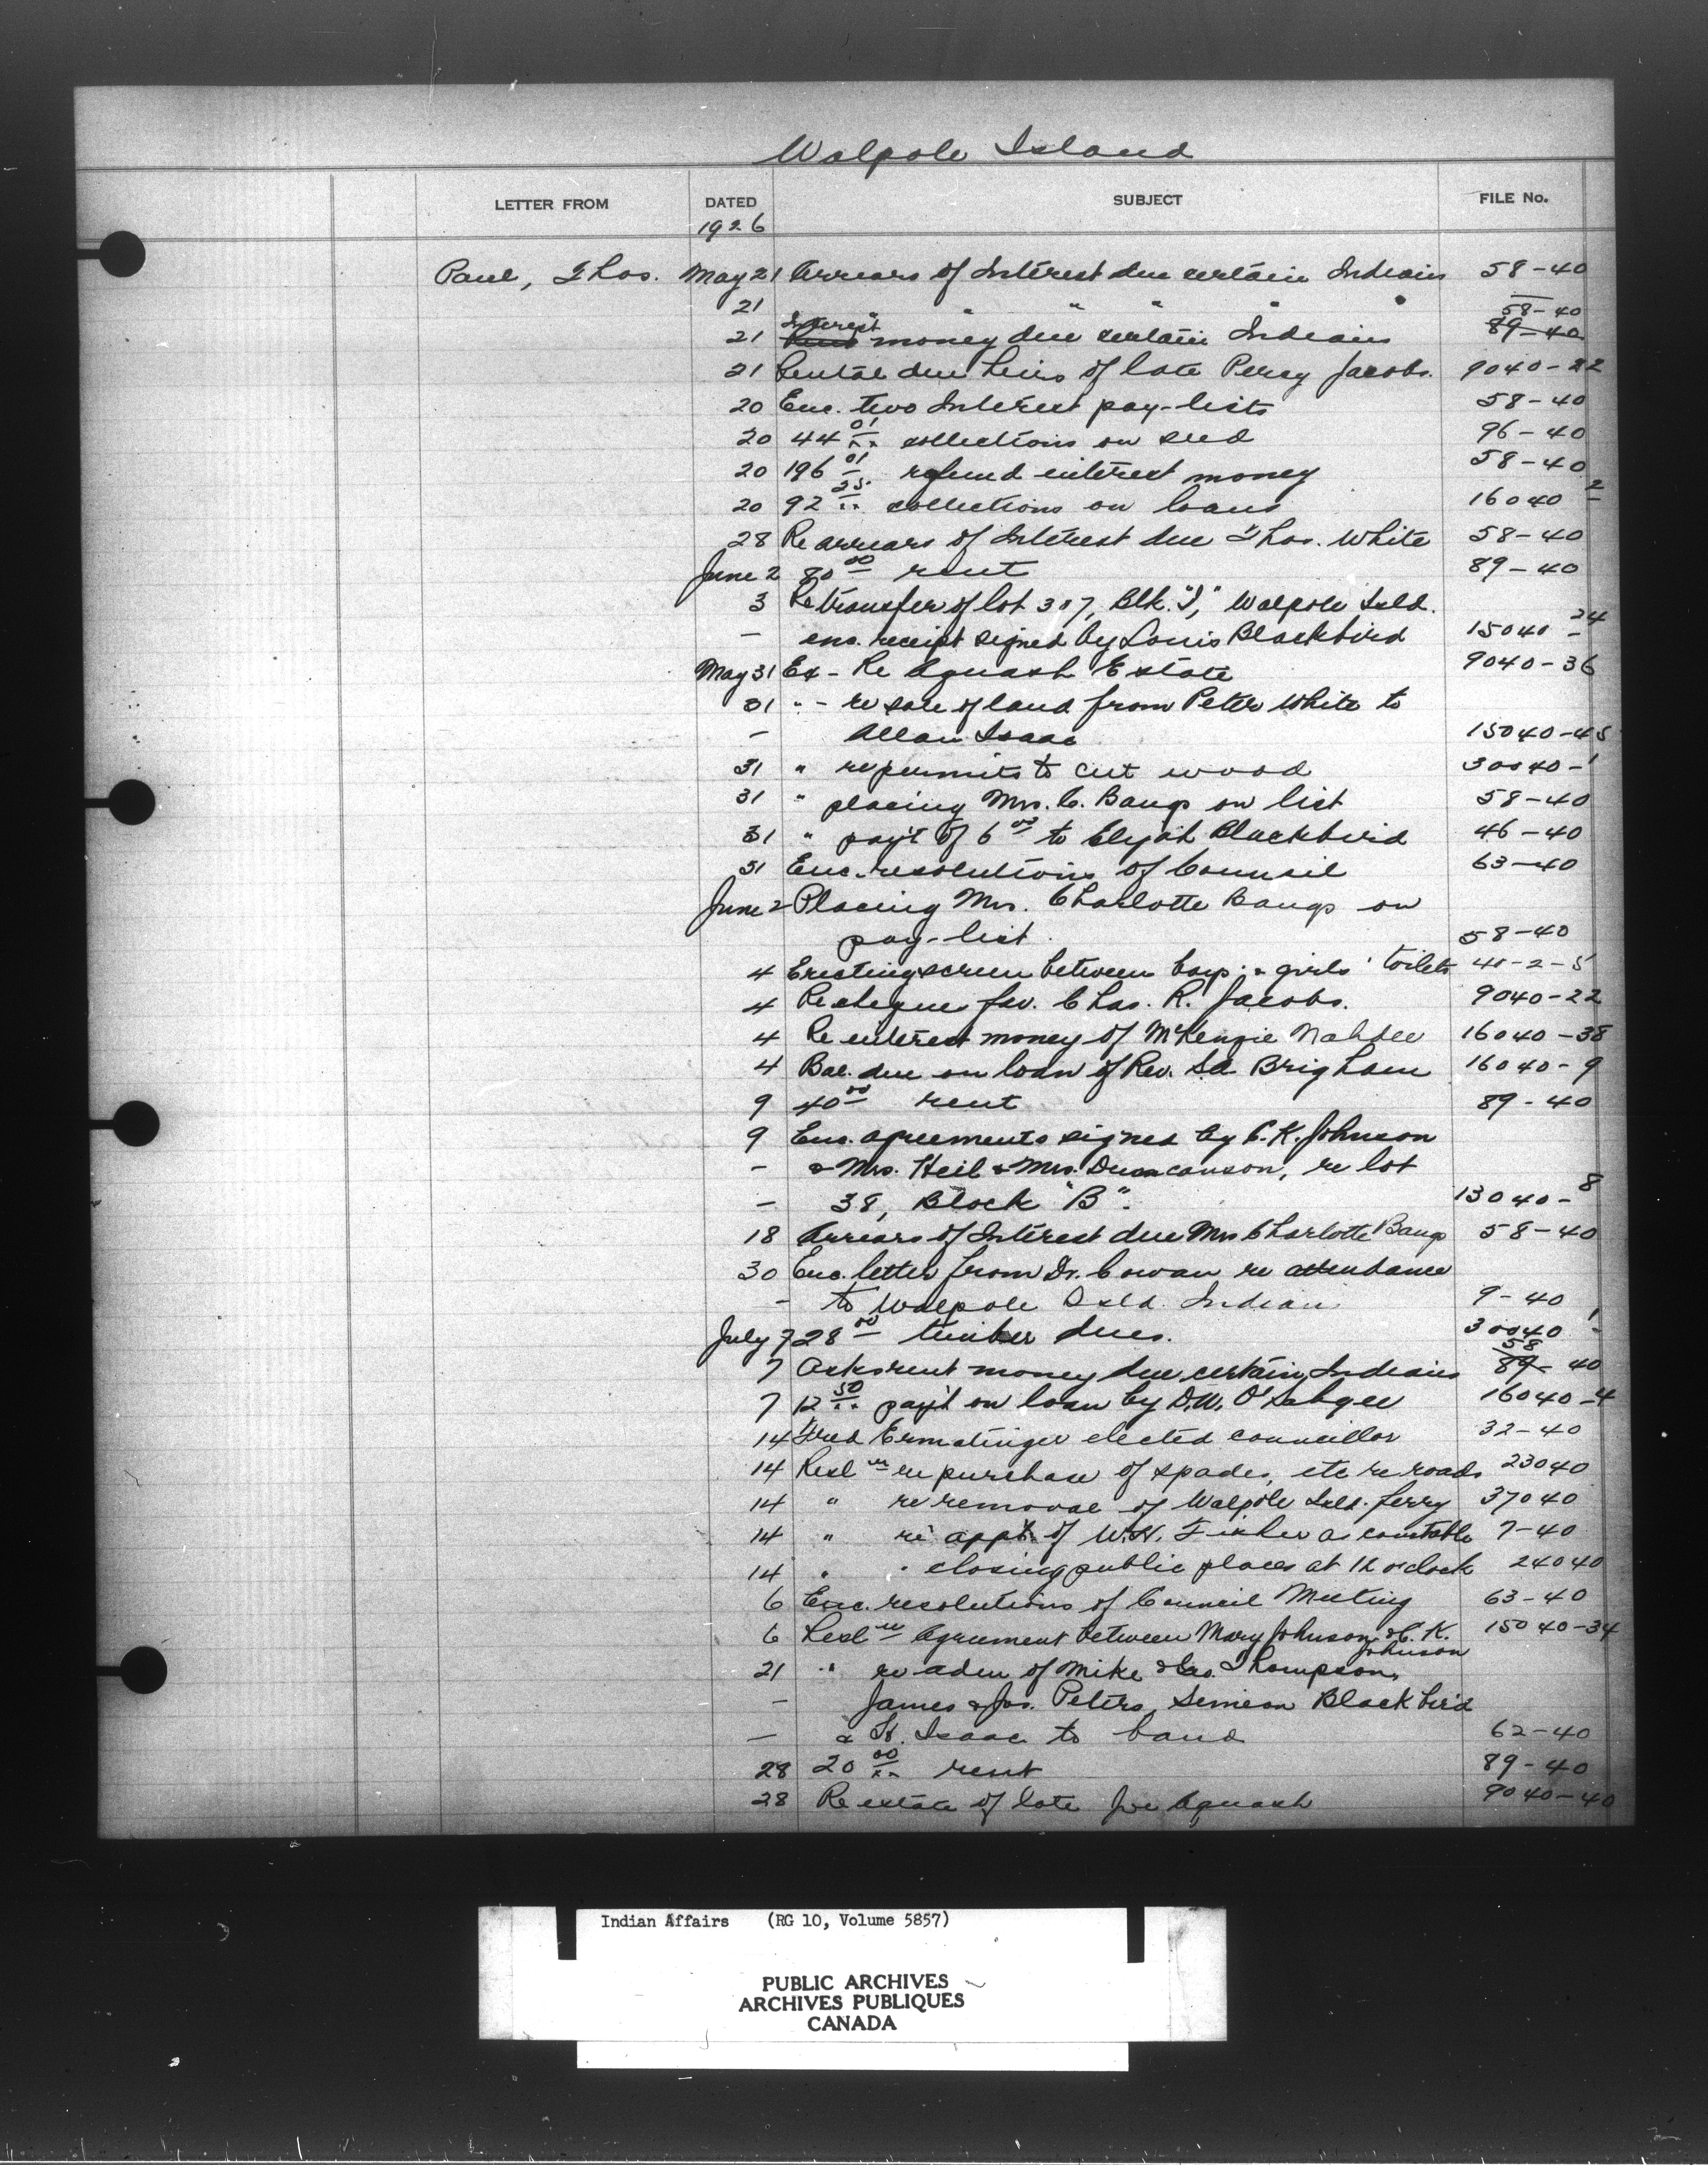 Walpole Island
LETTER FROM DATED SUBJECT FILE No.
1926
Paul, Thos. May 21 Arrears of Interest due certain Indians 58-40
21 " " " " 58-40
Interest 58-40
21 Rent money due certain Indians 89-40
21 Rental due heirs of late Percy Jacobs. 9040-22
20 Enc. two Interest pay-lists 58-40
20 44 01 collections on seed 96-40
20 196 01 refund interest money 58-40
20 92 25 collections on loans 16040-2
28 Re arrears of Interest due Thos. White 58-40
June 2 80 00 rent 89-40
3 Re transfer of lot 307, Blk. "I," Walpole Isld.
- enc. receipt signed by Louis Blackbird 15040-24
May 31 Ex - Re Aquash Estate 9040-36
31 " - re sale of land from Peter White to
- Allan Isaac 15040-45
31 " re permits to cut wood 30040-1
31 " placing Mrs. C. Bangs on list 58-40
31 " pay't of 6 00 to Elijah Blackbird 46-40
31 Enc. resolutions of Council 63-40
June 2 Placing Mrs. Charlotte Bangs on
pay-list. 58-40
4 Erecting screen between boys' & girls' toilets 40-2-5
4 Re cheque fav. Chas. R. Jacobs. 9040-22
4 Re interest money of McKenzie Nahdee 16040-38
4 Bal. due on loan of Rev. Sd Brigham 16040-9
9 40 00 rent 89-40
9 Enc. agreements signed by C.K. Johnson
- & Mrs. Heil & Mrs. Duncanson, re lot
- 38, Block "B". 13040-8
18 Arrears of Interest due Mrs Charlotte Bangs 58-40
30 Enc. letter from Dr. Cowan re attendance
- to Walpole Isld. Indian 9-40
July 7 28 00 timber dues. 30040-1
58
7 Asks rent money due certain Indians 89-40
7 12 50 pay't on loan by D.W. 16040-4
14 Fred Ermatinger elected councillor 32-40
14 Resl re purchase of spades, etc re roads 23040
14 " re removal of Walpole Isld. ferry 37040
14 " re app't of W.H. Fisher as constable 7-40
14 " " closing public places at 12 o'clock 24040
6 Enc. resolutions of Council Meeting 63-40
6 Resl re Agreement between Mary Johnson & C.K. 15040-34
Johnson
21 " re adm of Mike & Geo. Thompson,
- James & Jos. Peters, Simeon Blackbird
- & H. Isaac to band 62-40
28 20 00 rent 89-40
28 Re estate of late Joe Aquash 9040-40
Indian Affairs (RG 10, Volume 5857)
PUBLIC ARCHIVES
ARCHIVES PUBLIQUES
CANADA